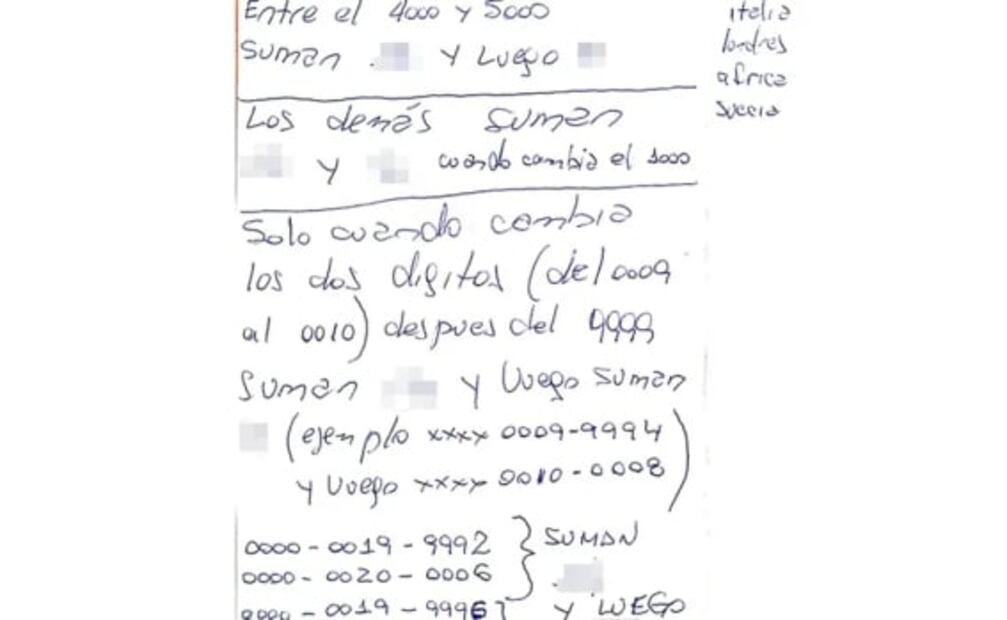 Entre el 4000 y 5000
Suman y Luego
Los demás suman
y cuando cambia el 1000
Solo cuando cambia
los dos digitos (del 0009
al 0010) despues del 9999
Suman y luego suman
(ejemplo xxxx 0009-9994
y luego xxxx 0010-0008)
0000-0019-9992 } SUMAN
0000-0020-0006
0000-0019-9996 y LUEGO
italia
londres
africa
suecia